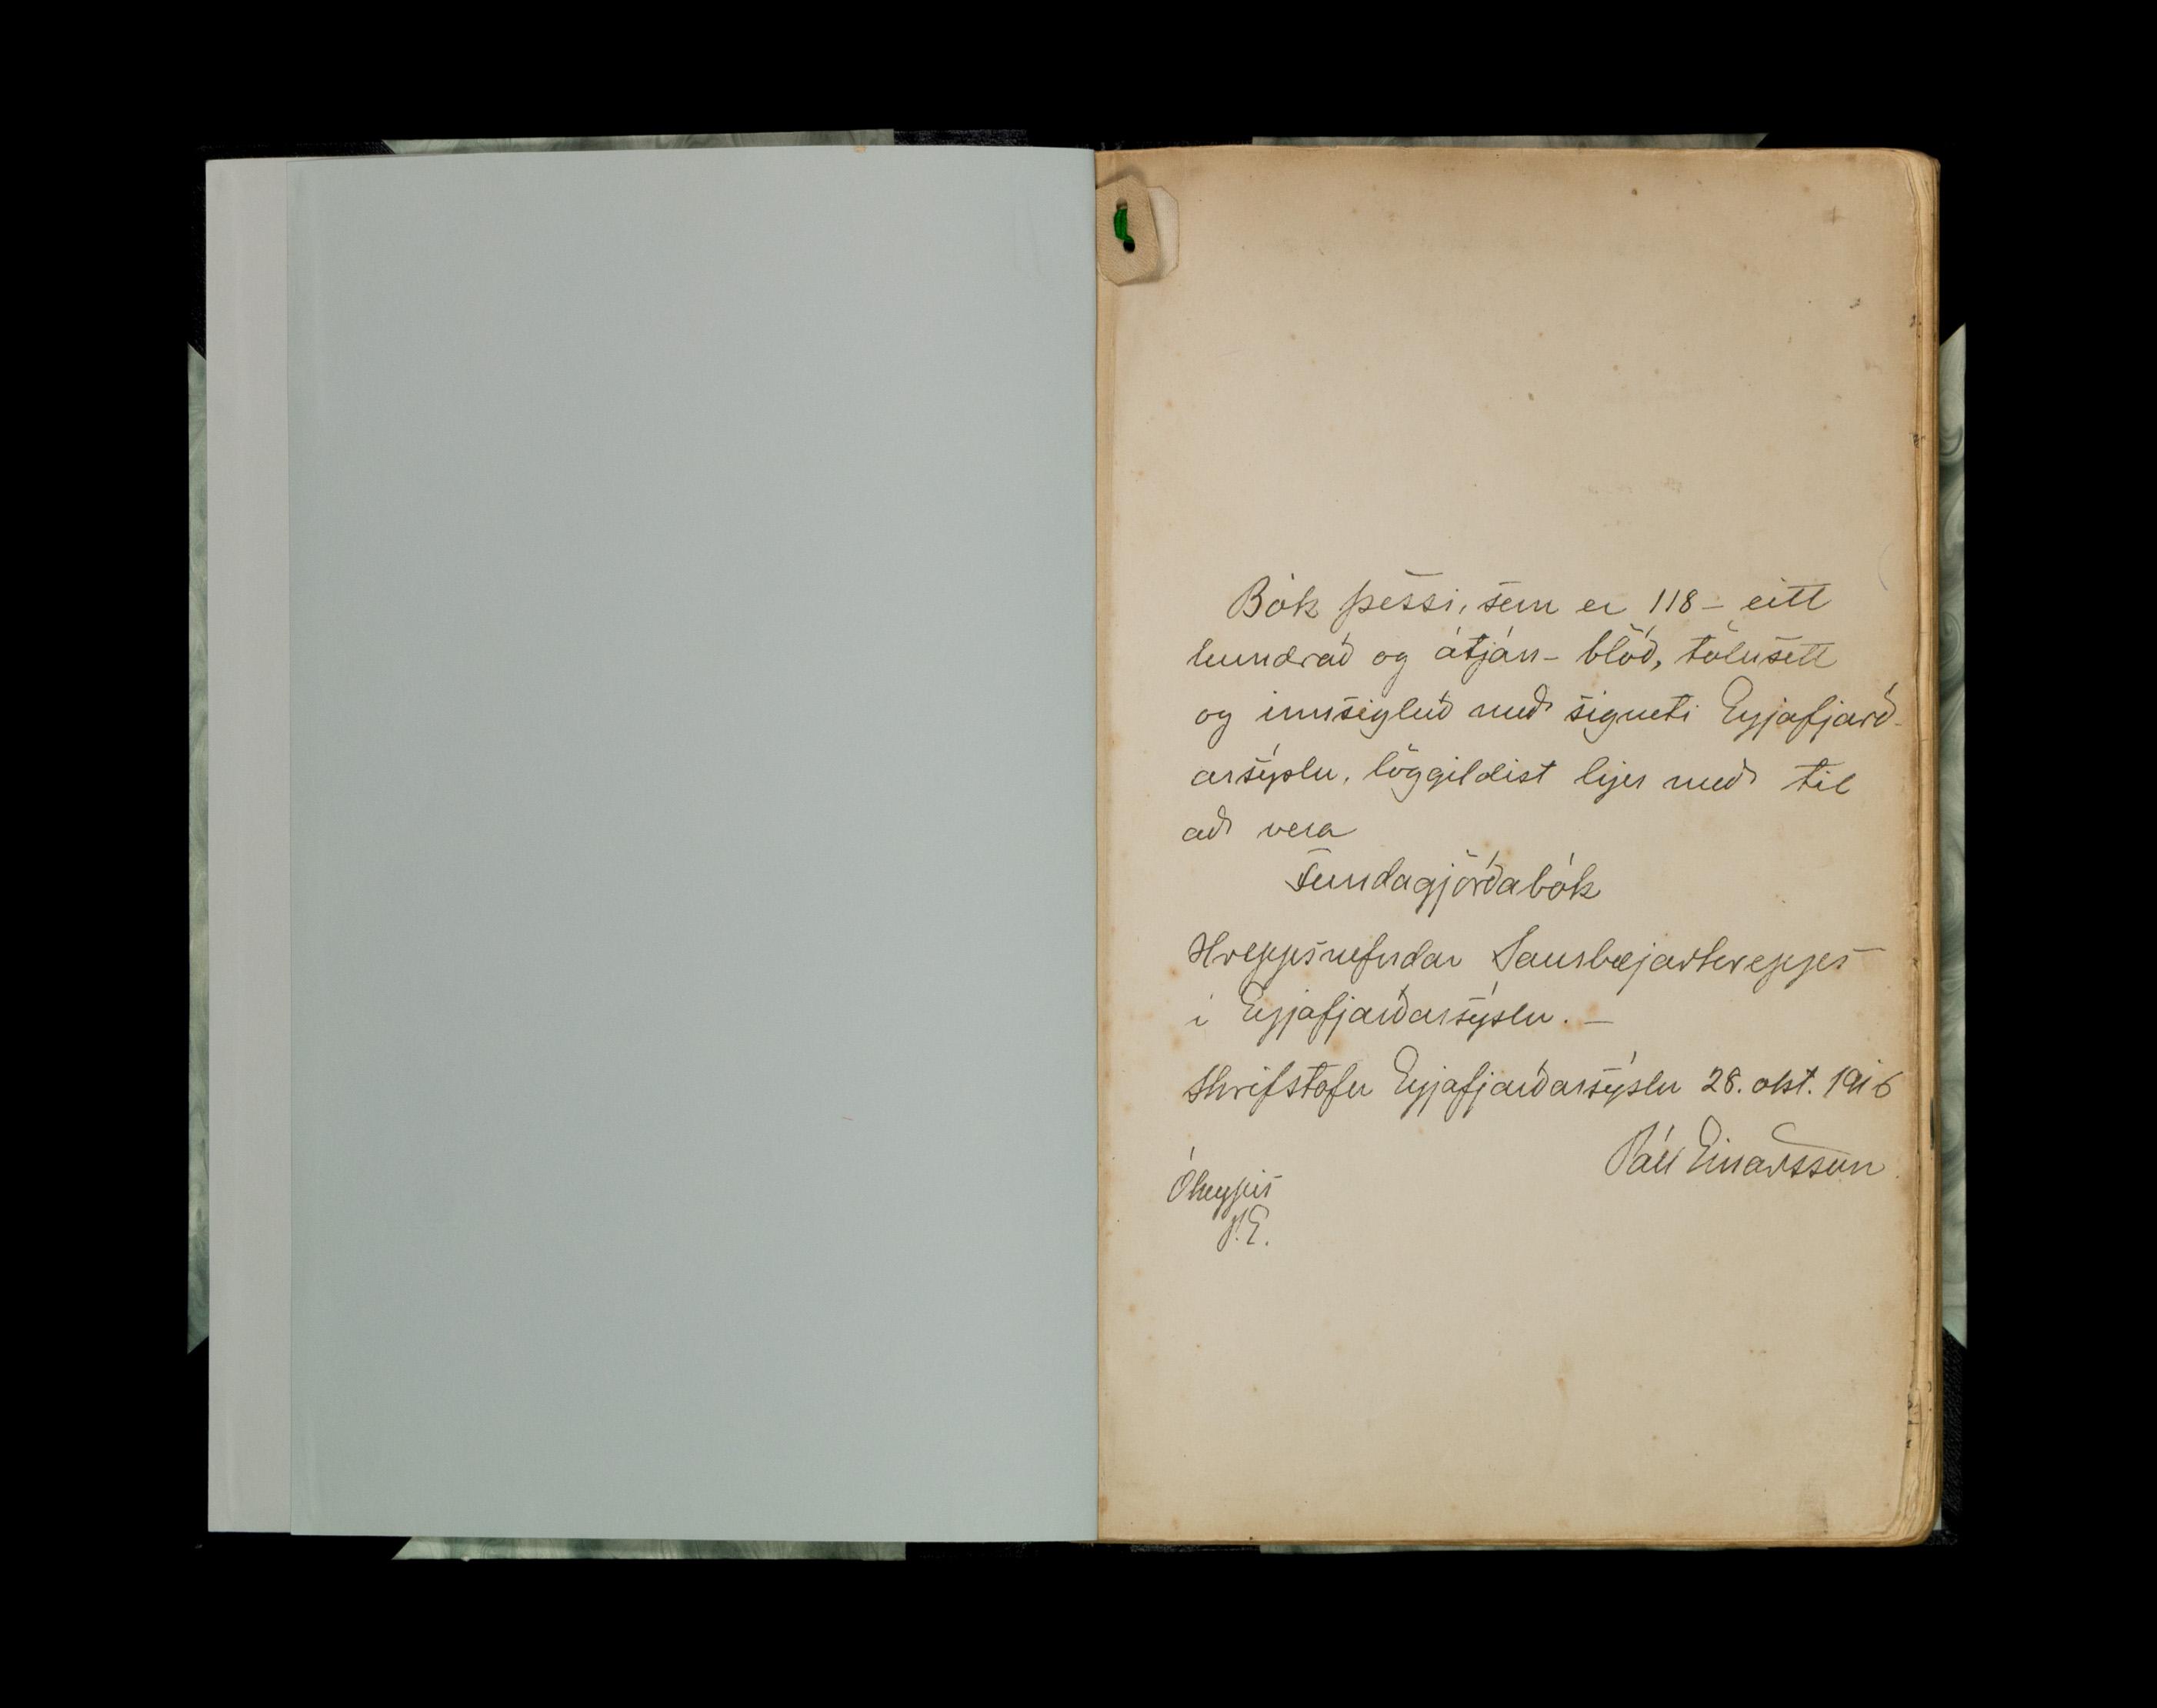 Bók þessi, sem er 118 - eitt
hundrað og átján - blöð, tölusett
og innsigluð með signeti Eyjafjarð-
arsýslu, löggildist hjer með til
að vera
Fundagjörðabók
Hreppsnefndar Saurbæjarhrepps
í Eyjafjarðarsýslu. -
Skrifstofu Eyjafjarðarsýslu 28. okt. 1916
Páll Einarsson
Ókeypis
P.E.